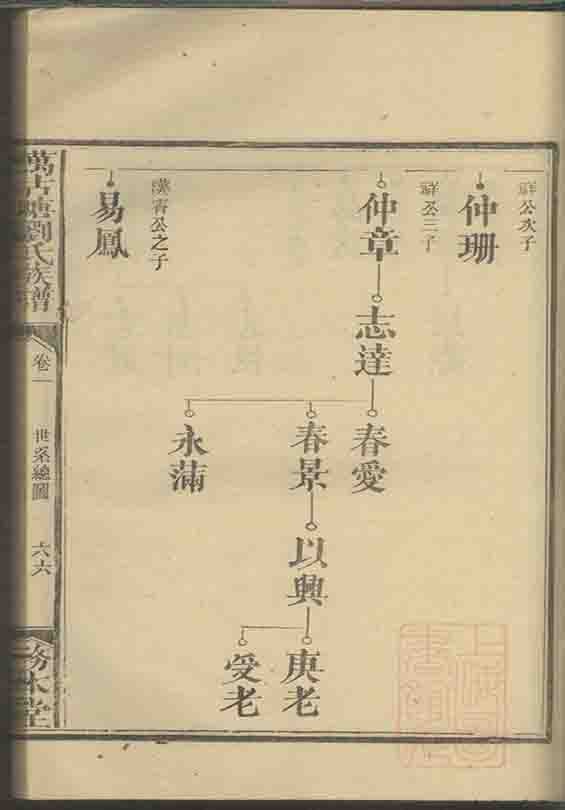 祥公次子
仲珊
祥公三子
仲章
志達
春愛
春景
以興
庚老
受老
永滿
漢宵公之子
易鳳
萬古塘劉氏族譜
卷一
世系總圖
六六
務本堂